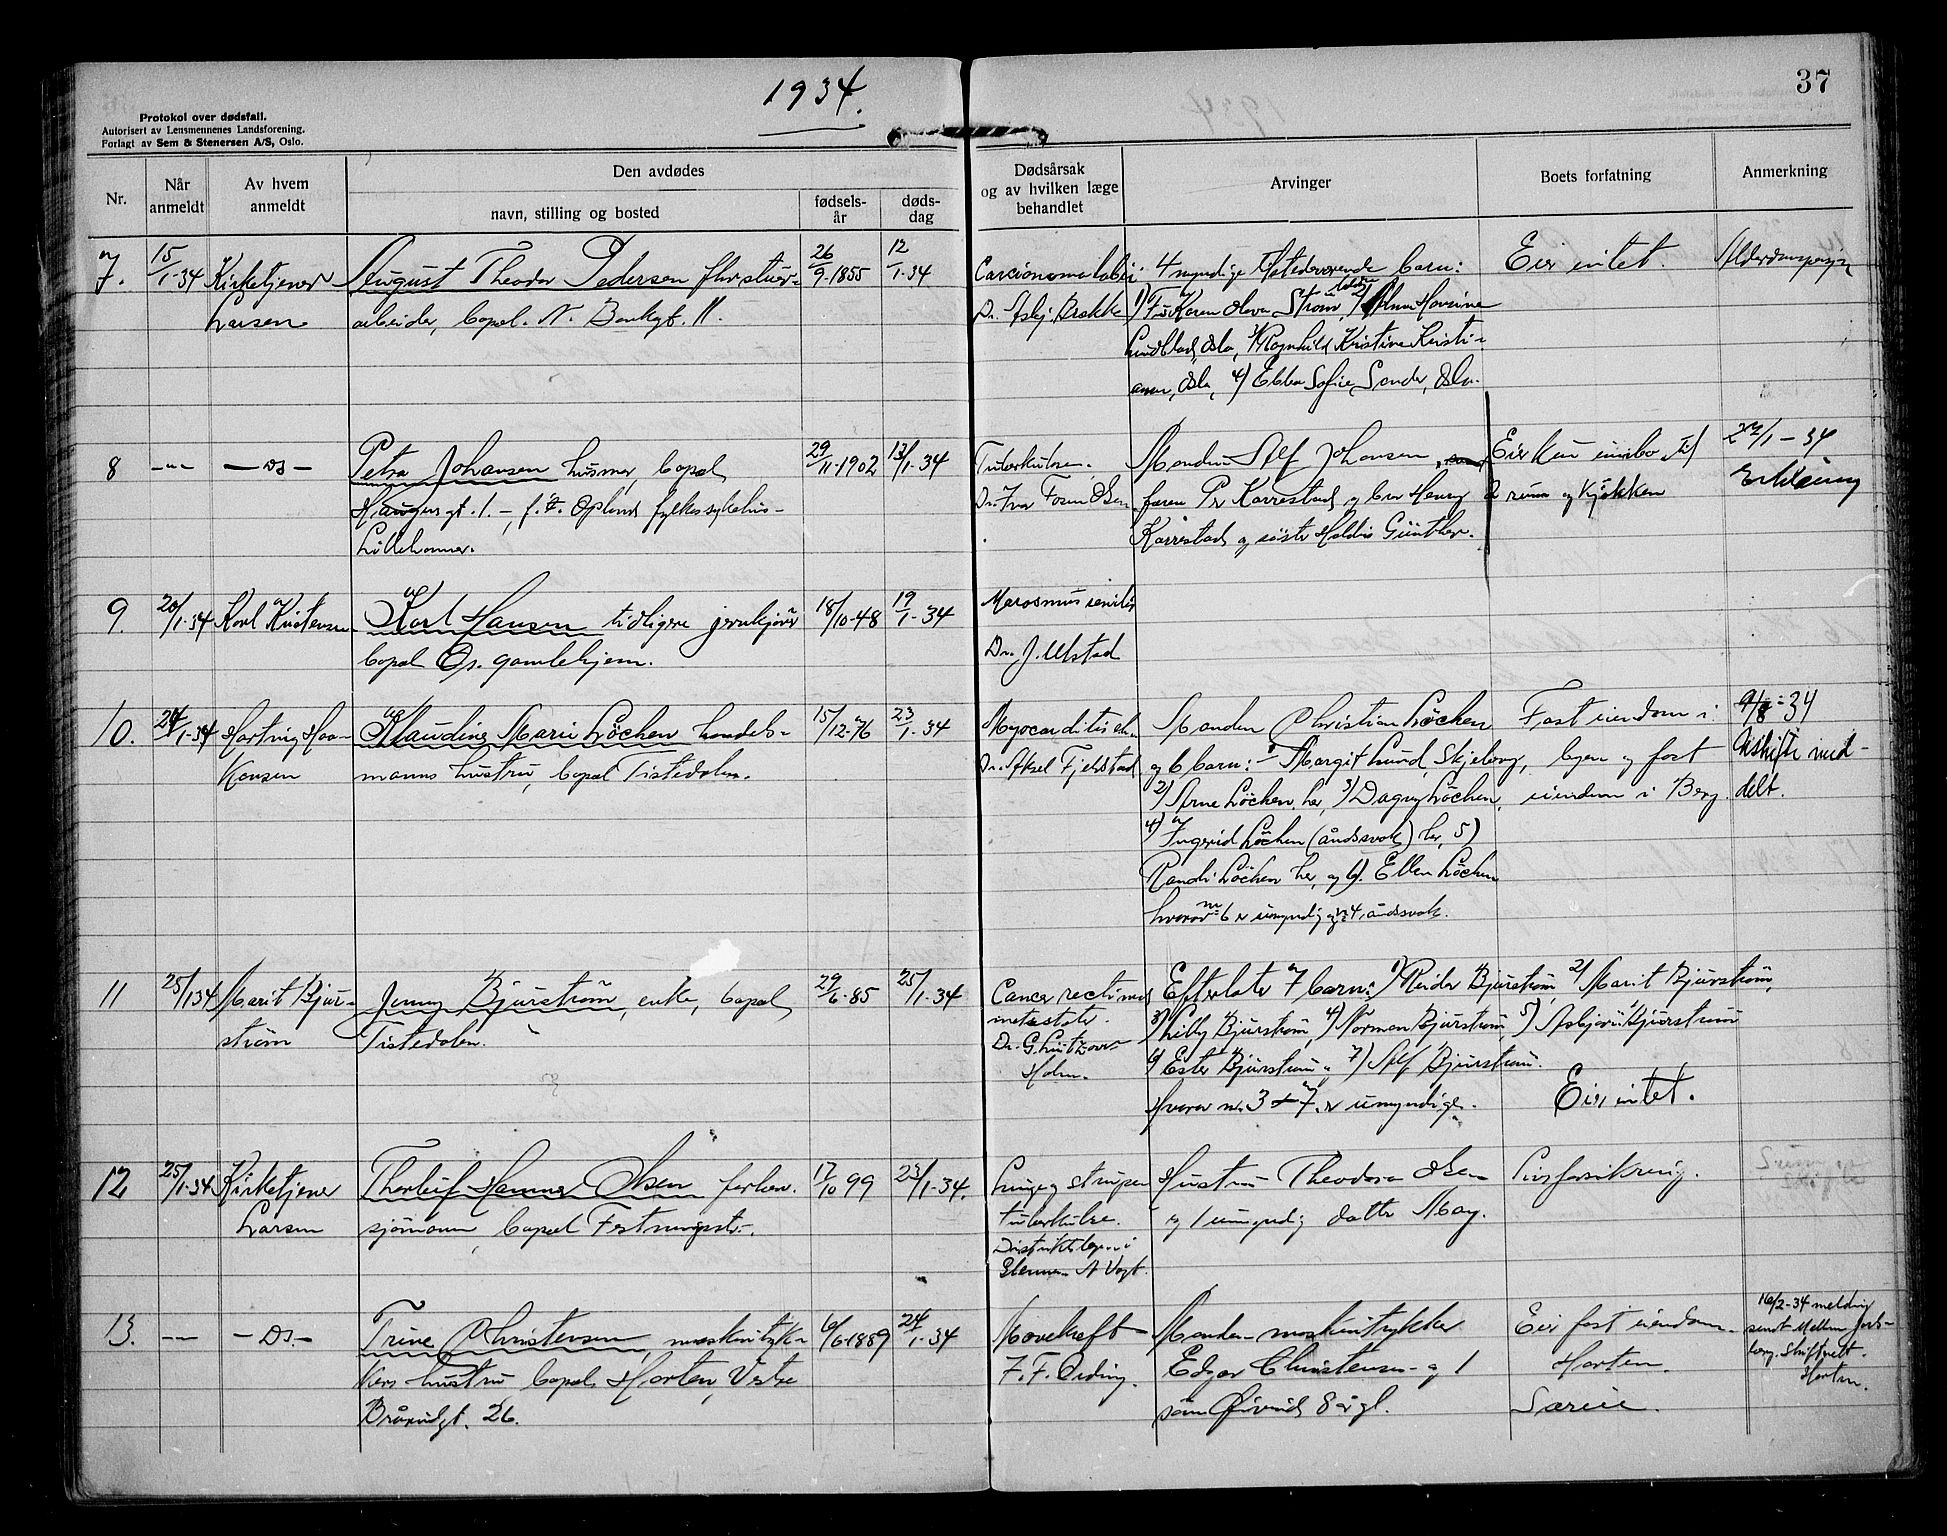 1934.
37
Protokol over dødsfall.
Autorisert av Lensmennenes Landsforening.
Forlagt av Sem & Stenersen A/S, Oslo.
Nr.
Når anmeldt
Av hvem anmeldt
Den avdødes
navn, stilling og bosted
fødsels-år
døds-dag
Dødsårsak og av hvilken læge behandlet
Arvinger
Boets forfatning
Anmerkning
7. 15/1-34 Kirketjener August Theodor Pedersen 26/9-1855 12/1-34 4 myndige barn: Eier intet. Alderdomspensjon
Larsen arbeider, bopel N. Bankgt. 11. Dr. Asbj. Brække 1) Fru Karen Olava Strøm,
Lundblad, Oslo, Ragnhild Kristine Kristi-
Oslo, 4) Ebba Sofie Oslo.
8 -"- - Ds - Petra Johansen husmor, bopel 29/11-1902 13/1-34 Tuberkulose. Manden Alf Johansen, Eier kun innbo til 22/1-34
Haugergt. 1 -, f. t. Opland fylkessykehus- Dr. Ivar faren Karrestad og bror Henry 2 rum og kjøkken Erklæring
Lillehammer. Karrestad og søster Haldis Günther.
9. 20/1-34 Karl Kristensen Karl Hansen tidligere 18/10-48 19/1-34 Marasmus senilis
bopel Os. gamlehjem. Dr. J. Ulstad
10. 24/1-34 Hartvig Haa- Klaudine Marie Løchen handels- 15/12-76 23/1-34 Myocarditis ch. Manden Christian Løchen Fast eiendom i
kensen manns hustru, bopel Tistedalen. Dr. Aksel Fjeldstad og 6 barn: 1) Margit Lund, Skjeberg, byen og fast Uskifte med-
2) Arne Løchen her, 3) Dagny Løchen, eiendom i Berg. delt.
4) Ingerid Løchen (åndssvak) her, 5)
Randi Løchen her, og 6). Ellen Løchen
hvorav nr 6 er umyndig og nr 4 åndssvak.
11 25/1 34 Marit Bjur- Jenny Bjurstrøm, enke, bopel 29/6-85 25/1-34 Cancer recti med Efterlater 7 barn: 1) Reidar Bjurstrøm, 2) Marit Bjurstrøm,
strøm Tistedalen. metastater. 3) Lilly Bjurstrøm, 4) Norman Bjurstrøm, 5) Asbjørn Bjurstrøm
Dr. G. Lützow-Holm. 6) Ester Bjurstrøm, 7) Alf Bjurstrøm.
Hvorav nr. 3 - 7 er umyndige. Eier intet.
12 25/1-34 Kirketjener Thorleif Olsen forhen. 17/10 99 23/1-34. Lunge og strupe Hustru Theodora Olsen Livsforsikring.
Larsen sjømann, bopel tuberkulose. og 1 umyndig datter May.
Distriktslegen i
Glemmen A Vogt.
13. - - - Ds - Trine Christensen, maskintryk- 6/6-1889 24/1-34 Mavekreft Manden maskintrykker Eier fast eiendom 16/2-34 melding
kers hustru, bopel Horten, Vestre F. F. Ording. Edgar Christensen og 1 Horten. sendt
Braarudgt. 26. søn Øivind 8 år gl. Særeie. Horten.